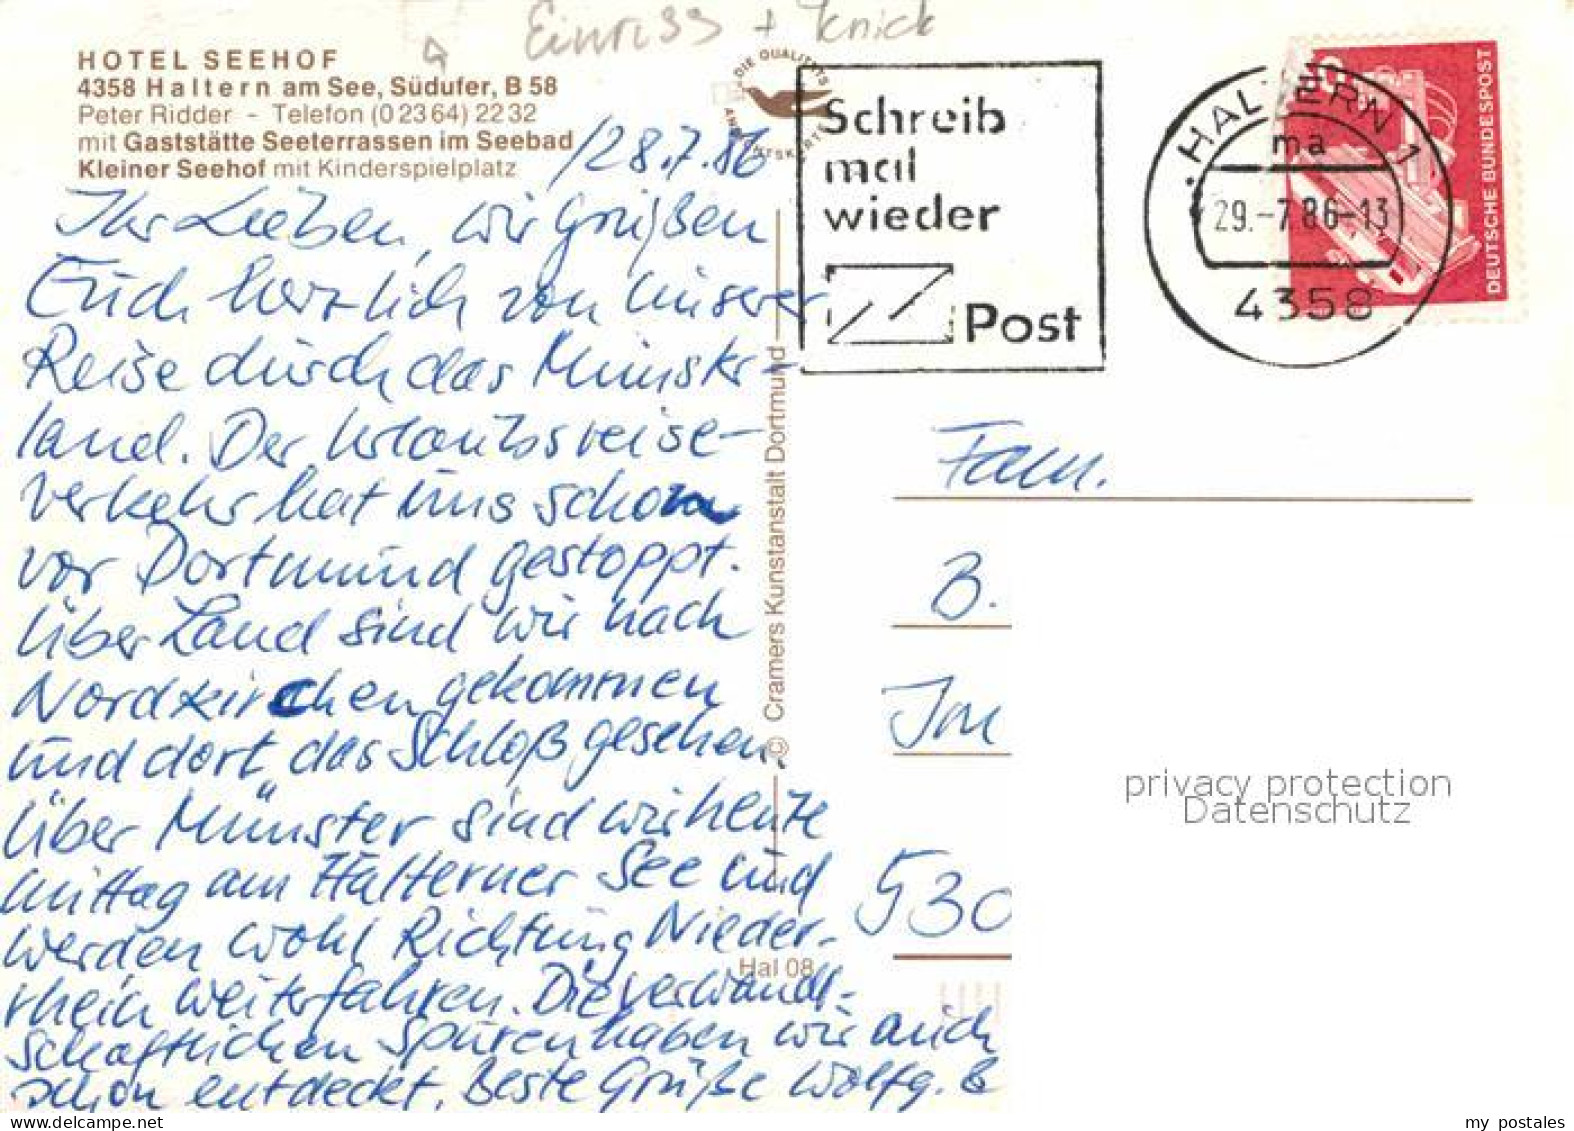 Einriss + Knick
HOTEL SEEHOF
4358 Haltern am See, Südufer, B 58
Peter Ridder - Telefon (0 23 64) 22 32
mit Gaststätte Seeterrassen im Seebad
Kleiner Seehof mit Kinderspielplatz
28.7.86
Ihr Lieben, wir grüßen
Euch herzlich von unserer
Reise durch das Münster-
land. Der Urlaubsreise-
verkehr hat uns schon
vor Dortmund gestoppt.
Über Land sind wir nach
Nordkirchen gekommen
und dort das Schloß gesehen.
Über Münster sind wir heute
mittag am Halterner See und
werden wohl Richtung Nieder-
rhein weiterfahren. Die verwandt-
schaftlichen Spuren haben wir auch
schon entdeckt. Beste Grüße Wolfg. B
DIE QUALITÄTS
ANSICHTSKARTE
© Cramers Kunstanstalt Dortmund
Hal 08
Schreib
mal
wieder
Post
HALTERN 1
ma
29.-7.86-13
4358
DEUTSCHE BUNDESPOST
Fam.
B.
Im
530
privacy protection
Datenschutz
my postales